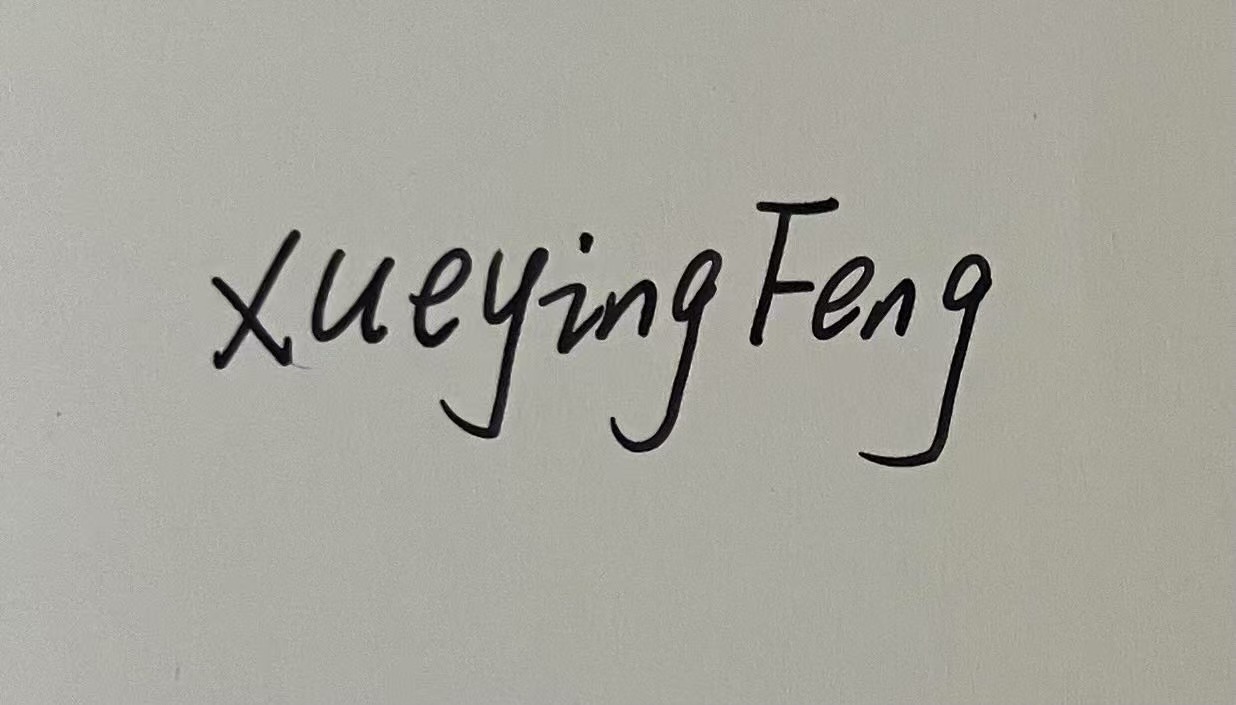 Xueying Feng